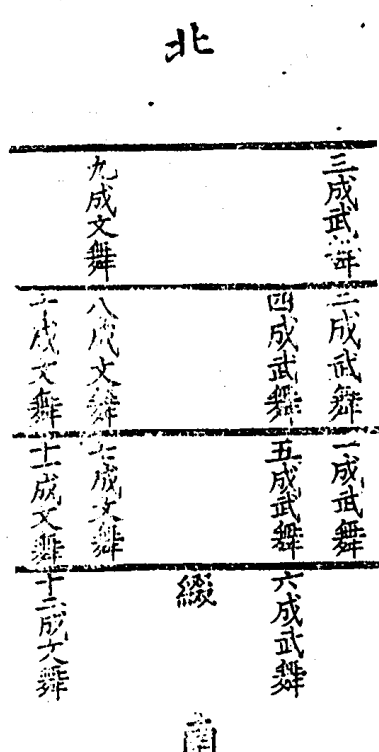 北
三成武舞
九成文舞
二成武舞
四成武舞
八成文舞
十成文舞
一成武舞
五成武舞
七成文舞
十一成文舞
六成武舞
綴
十二成文舞
南